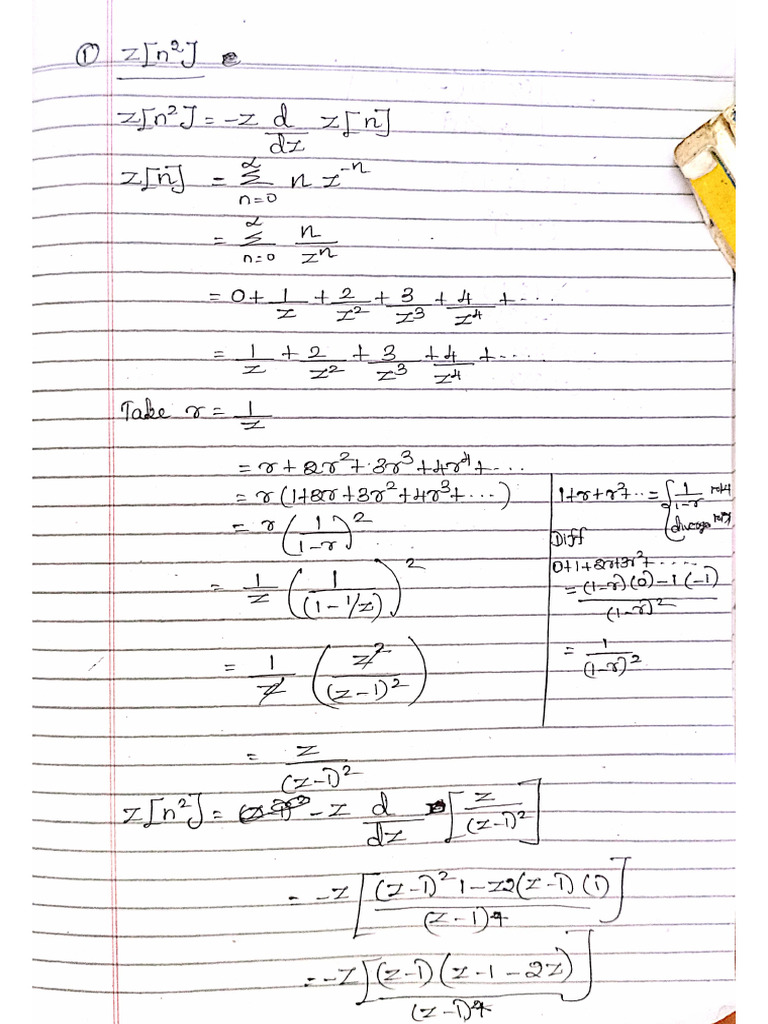 ① Z[n²]
Z[n²] = -z d/dz Z[n]
Z[n] = ∑_{n=0}^{∝} n z^{-n}
= ∑_{n=0}^{∝} n/zⁿ
= 0 + 1/z + 2/z² + 3/z³ + 4/z⁴ + ....
= 1/z + 2/z² + 3/z³ + 4/z⁴ + ....
Take r = 1/z
= r + 2r² + 3r³ + 4r⁴ + ...
= r(1+2r+3r²+4r³+...)
= r (1/(1-r))²
= 1/z (1/(1-1/z))²
= 1/z (z²/(z-1)²)
= z/(z-1)²
1+r+r²+.. = { 1/(1-r)
Diff
0+1+2r+3r²+.....
= ((1-r)(0)-1(-1))/(1-r)²
= 1/(1-r)²
Z[n²] = -z d/dz [z/(z-1)²]
= -z [((z-1)² 1 - z2(z-1)(1))/(z-1)⁴]
= -z [(z-1)(z-1-2z)/(z-1)⁴]